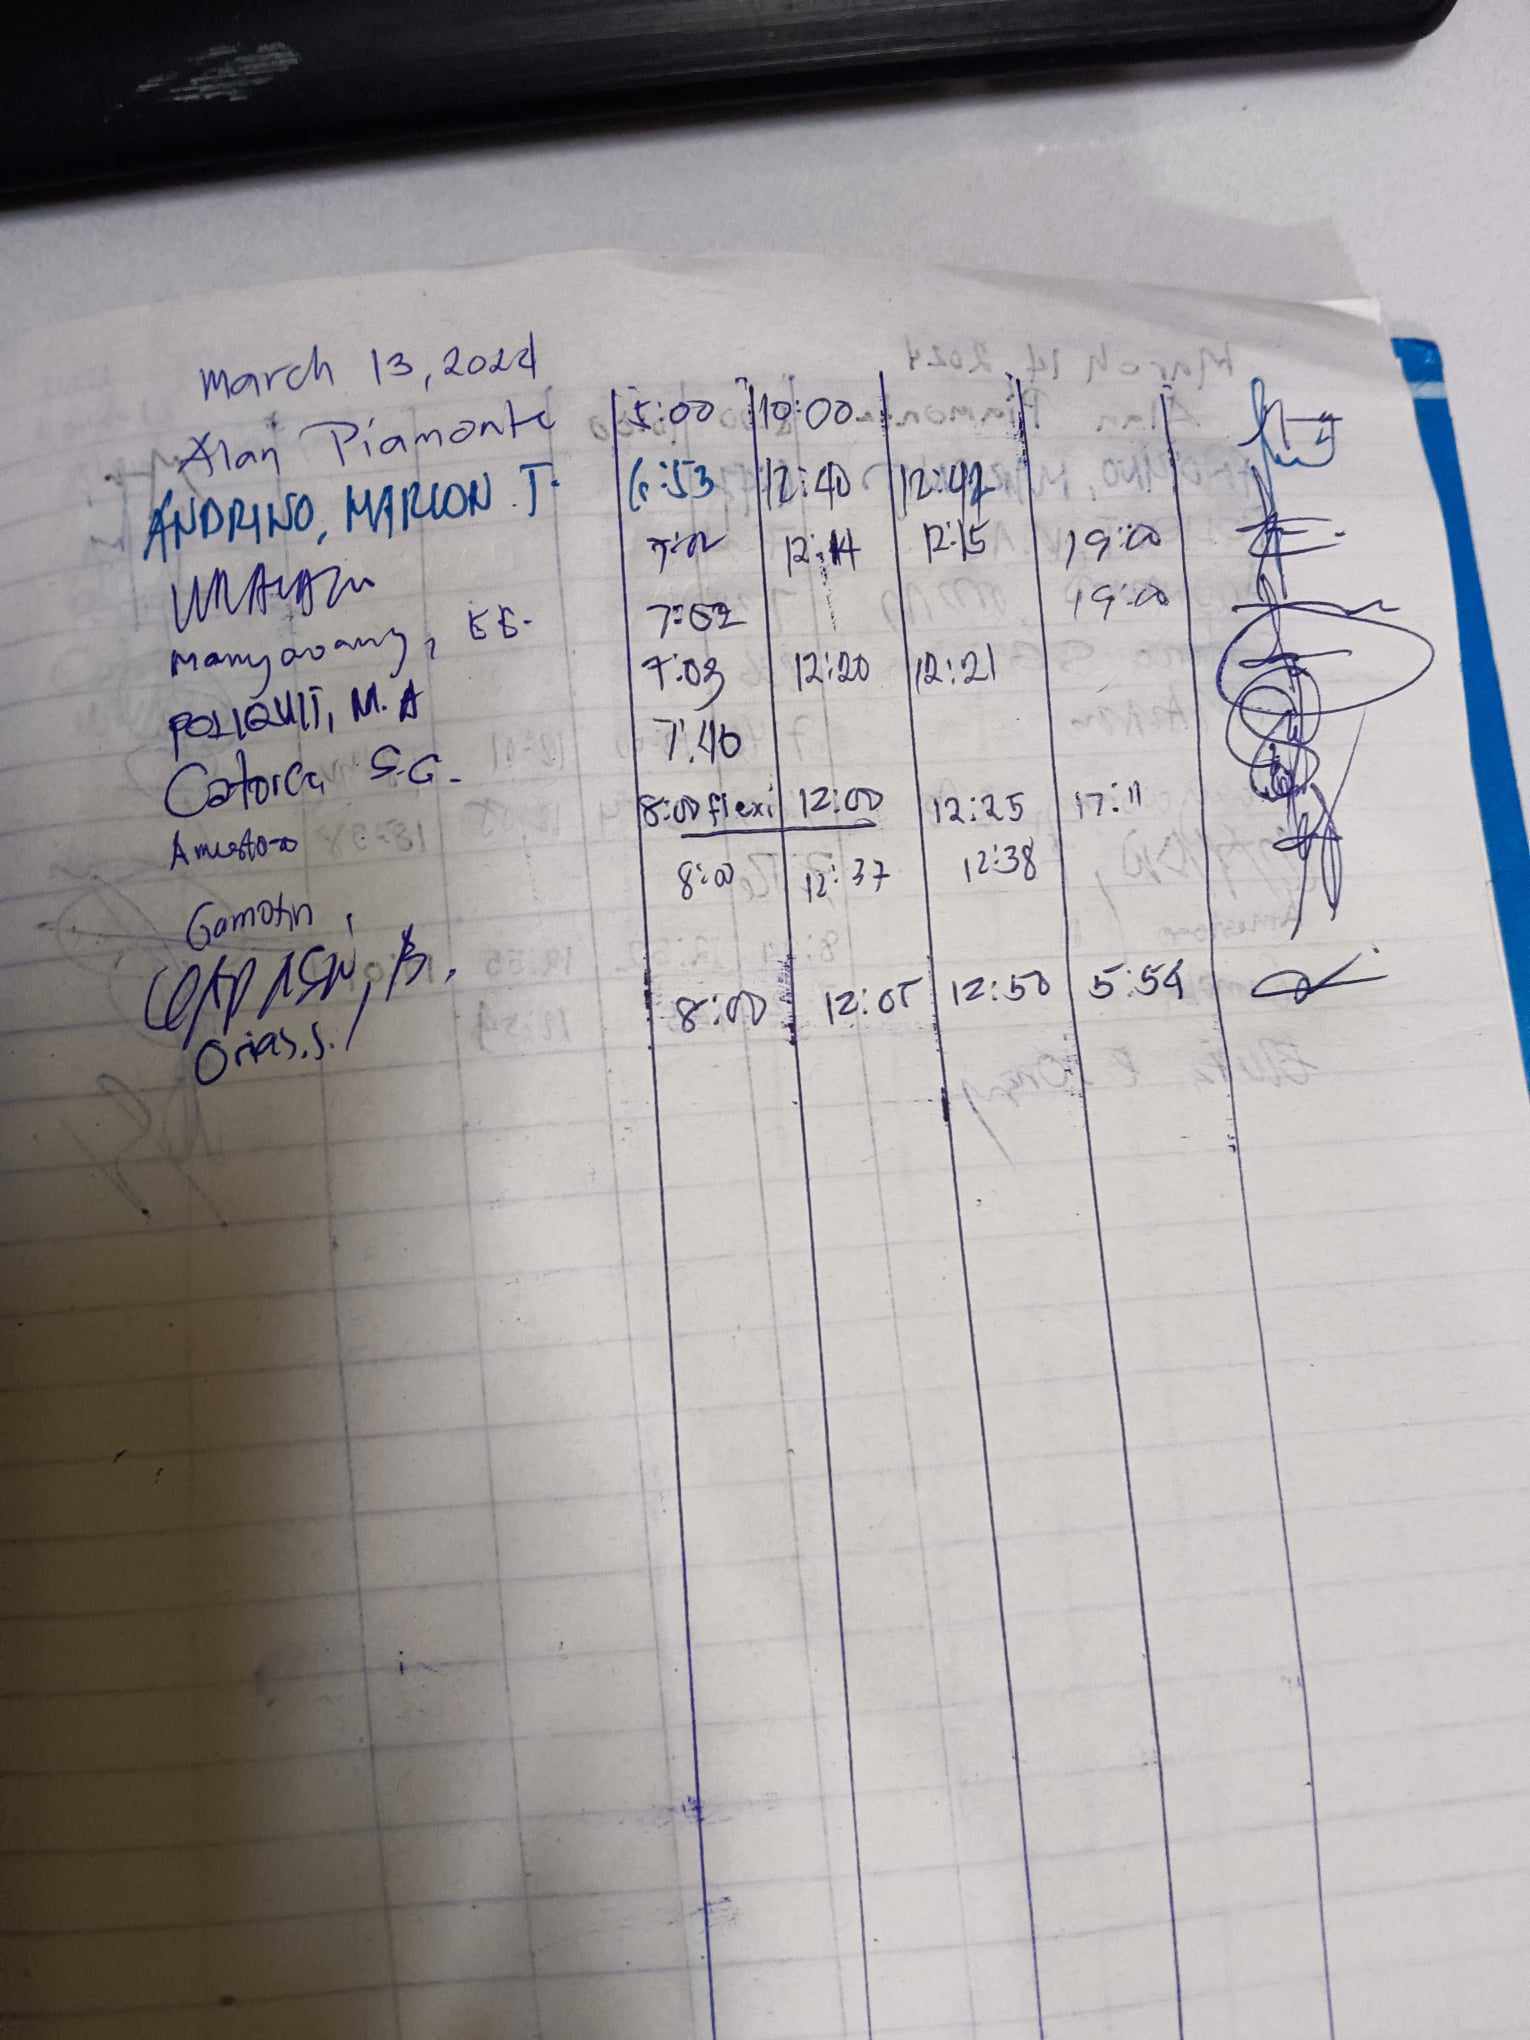 March 13, 2024
Alan Piamonte 5:00 10:00
ANDRINO, MARLON T. 6:53 12:40 12:42
7:02 12:14 12:15 19:00
Manyaoang, EE. 7:02 19:00
POLIQUIT, M.A 7:03 12:20 12:21
Catorce S.G. 7:46
Amestoso 8:00 flexi 12:00 12:25 17:11
Gamotin, 8:00 12:37 12:38
B.
Orias, S. 8:00 12:05 12:50 5:54